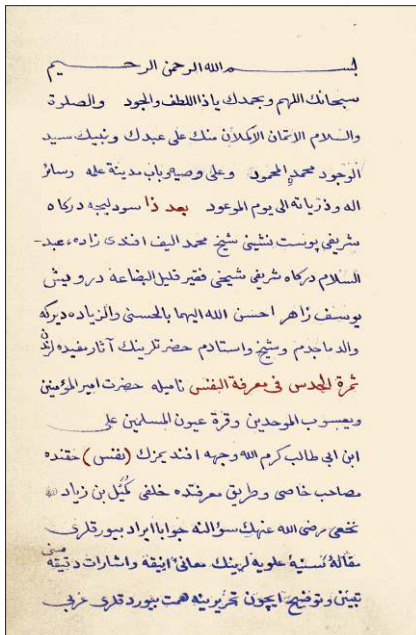 بسم الله الرحمن الرحيم
سبحانك اللهم وبحمدك ياذا اللطف والجود والصلوة
والسلام الاتمان الاكملان منك على عبدك ونبيك سيد
الوجود محمد المحمود وعلى وصيه وباب مدينة علمه وسائر
اله وذرياته الى يوم الموعود بعد ذا سودليجه دركاه
شريفى پوست نشينى شيخ محمد اليف افندى زاده، عبد-
السلام دركاه شريفى شيخى فقير قليل البضاعه درويش
يوسف زاهر احسن الله اليهما بالحسنى والزياده ديركه
والد ماجدم وشيخ واستادم حضرتلرينك آثار مفيده لرندن
ثمرة الحدس فى معرفة النفس ناميله حضرت امير المؤمنين
ويعسوب الموحدين وقرة عيون المسلمين على
ابن ابى طالب كرم الله وجهه افنديمزك (نفس) حقنده
مصاحب خاصى وطريق معرفتده خلفى كميل بن زياد
نخعى رضى الله عنهك سؤالنه جوابا ايراد بيورقلرى
مقالۀ سنيۀ علويه لرينك معانئ انيقه واشارات دقيقه سنى
تبيين وتوضيح ايچون تحريرينه همت بيوردقلرى عربى